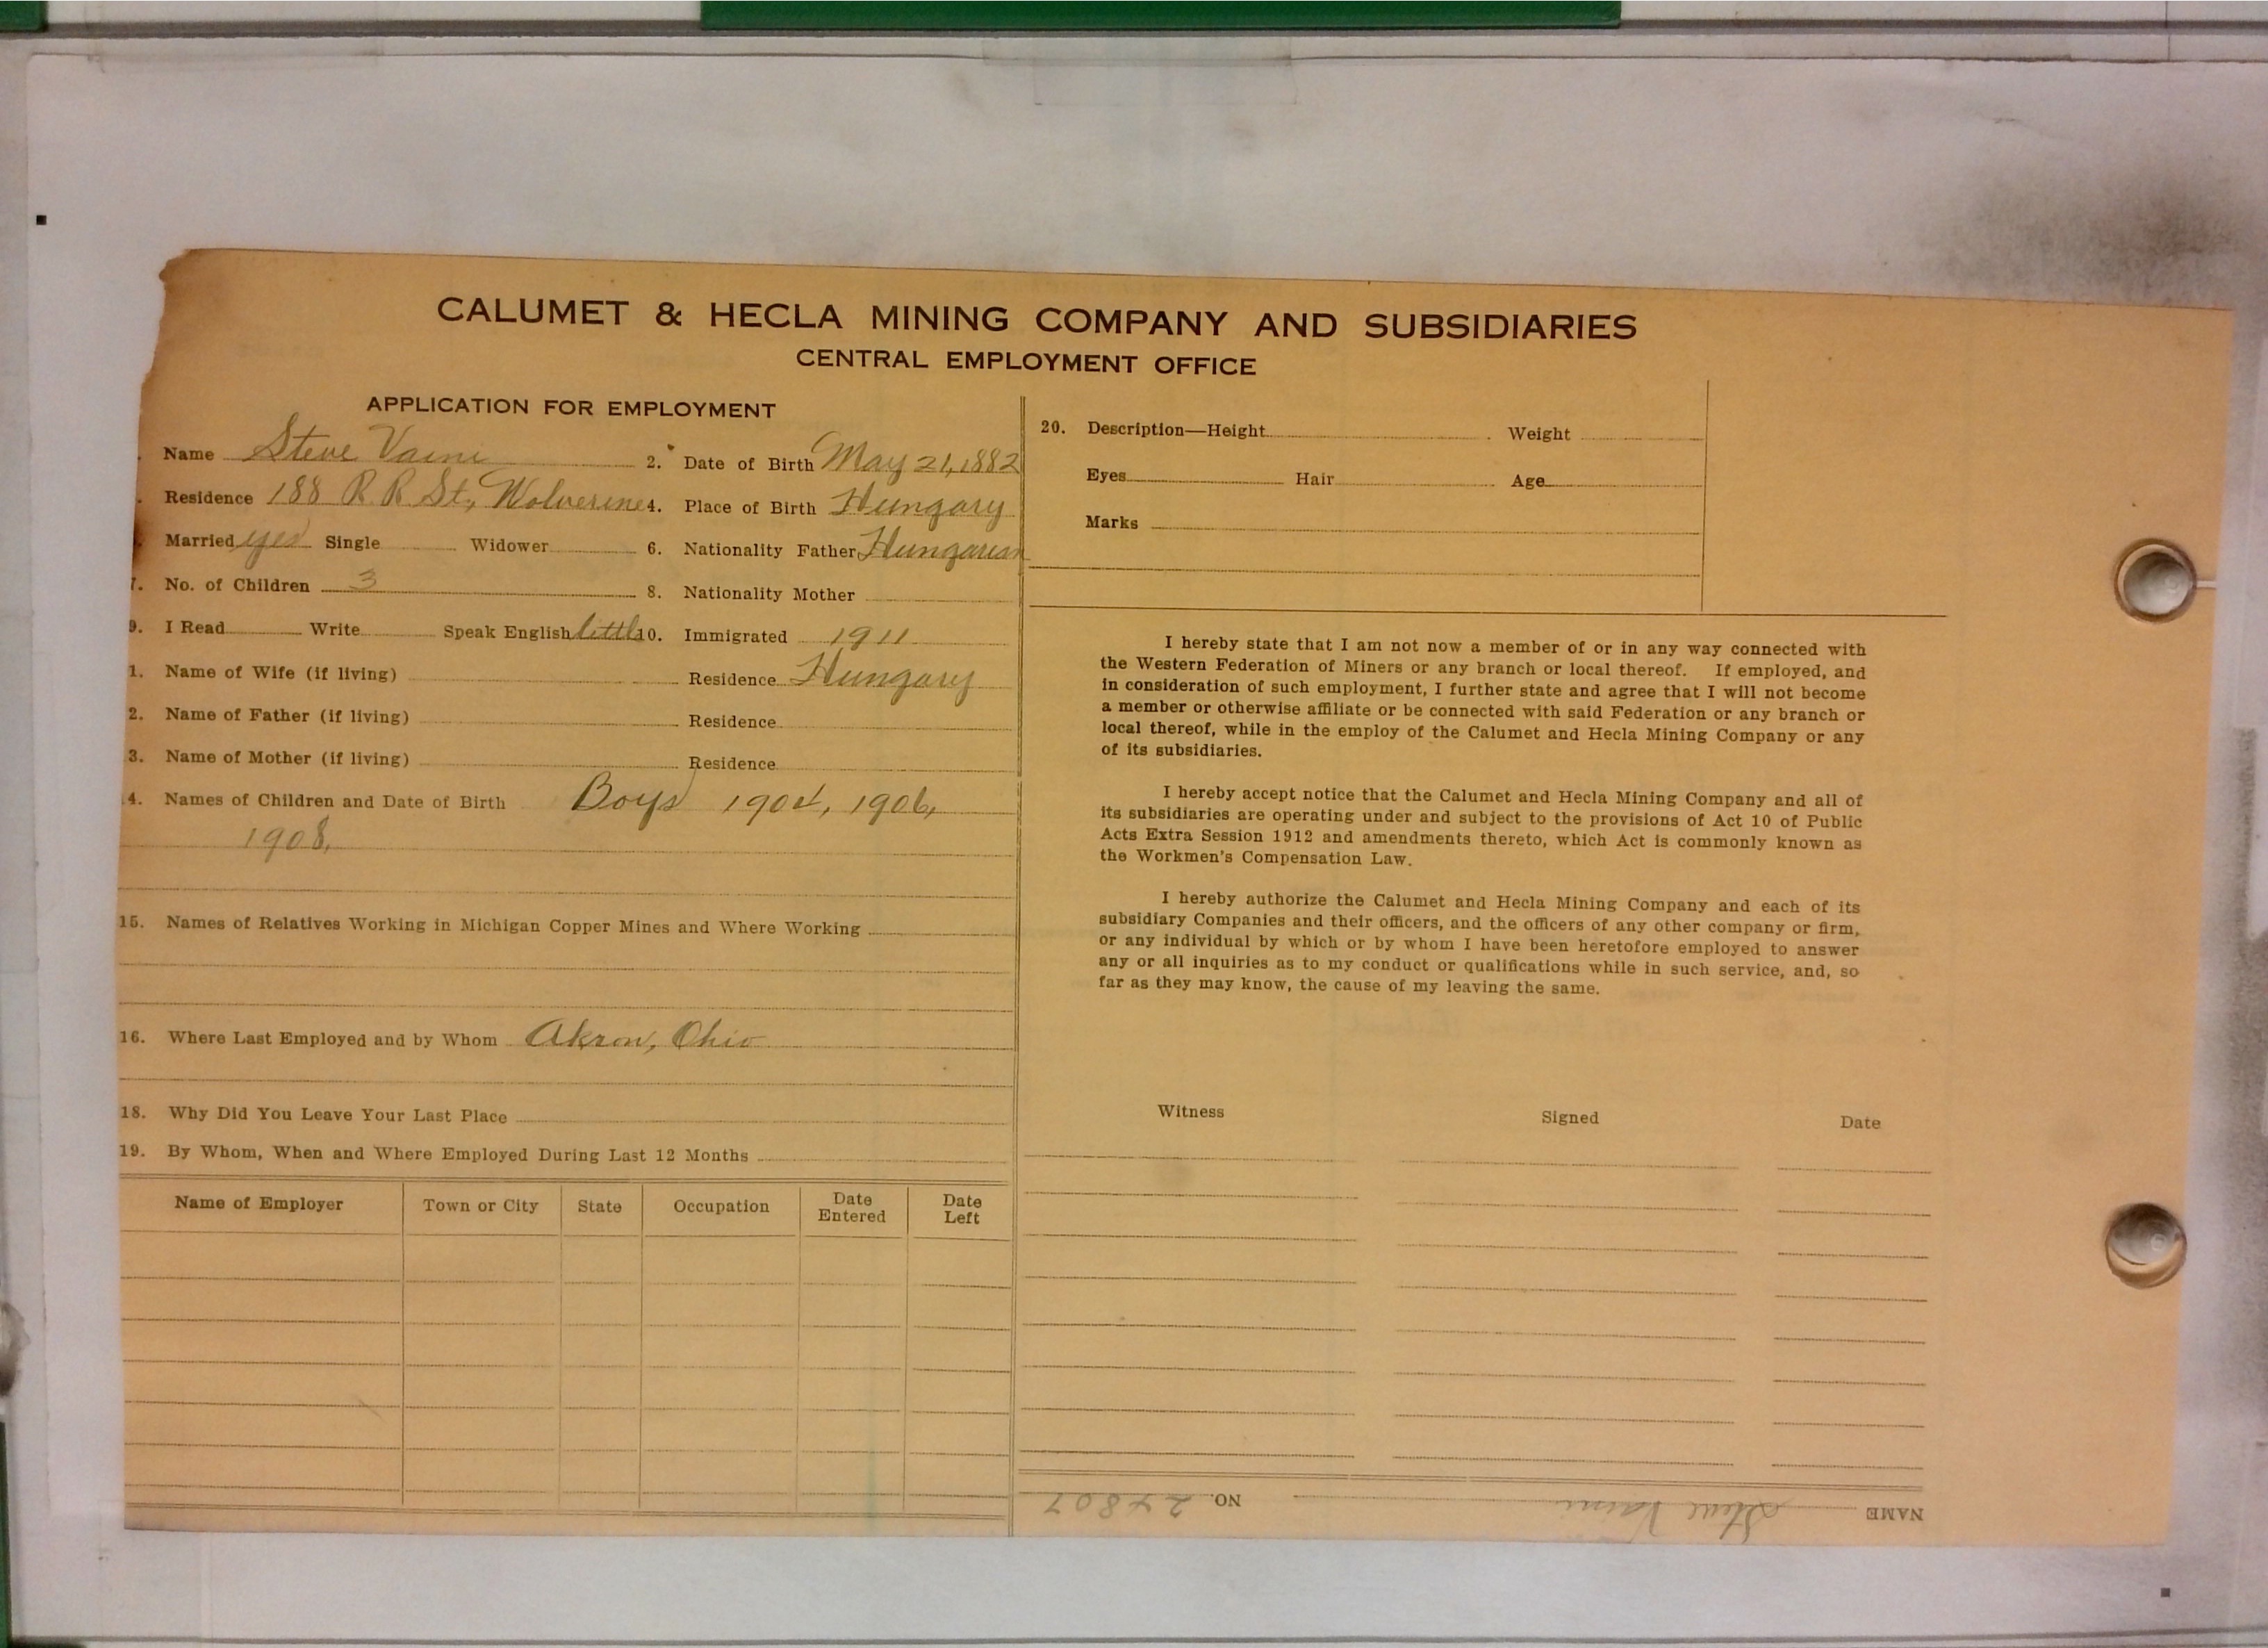 CALUMET & HECLA MINING COMPANY AND SUBSIDIARIES
CENTRAL EMPLOYMENT OFFICE
APPLICATION FOR EMPLOYMENT
Name Steve Vaini 2. Date of Birth May 21, 1882
Residence 188 R. R. St., Wolverine 4. Place of Birth Hungary
Married yes Single Widower 6. Nationality Father Hungarian
7. No. of Children 3 8. Nationality Mother
9. I Read Write Speak English little 10. Immigrated 1911
1. Name of Wife (if living) Residence Hungary
2. Name of Father (if living) Residence
3. Name of Mother (if living) Residence
14. Names of Children and Date of Birth Boys 1904, 1906,
1908,
15. Names of Relatives Working in Michigan Copper Mines and Where Working
16. Where Last Employed and by Whom Akron, Ohio
18. Why Did You Leave Your Last Place
19. By Whom, When and Where Employed During Last 12 Months
Name of Employer Town or City State Occupation Date Entered Date Left
20. Description—Height Weight
Eyes Hair Age
Marks
I hereby state that I am not now a member of or in any way connected with
the Western Federation of Miners or any branch or local thereof. If employed, and
in consideration of such employment, I further state and agree that I will not become
a member or otherwise affiliate or be connected with said Federation or any branch or
local thereof, while in the employ of the Calumet and Hecla Mining Company or any
of its subsidiaries.
I hereby accept notice that the Calumet and Hecla Mining Company and all of
its subsidiaries are operating under and subject to the provisions of Act 10 of Public
Acts Extra Session 1912 and amendments thereto, which Act is commonly known as
the Workmen's Compensation Law.
I hereby authorize the Calumet and Hecla Mining Company and each of its
subsidiary Companies and their officers, and the officers of any other company or firm,
or any individual by which or by whom I have been heretofore employed to answer
any or all inquiries as to my conduct or qualifications while in such service, and, so
far as they may know, the cause of my leaving the same.
Witness Signed Date
NAME Steve Vaini NO. 24807